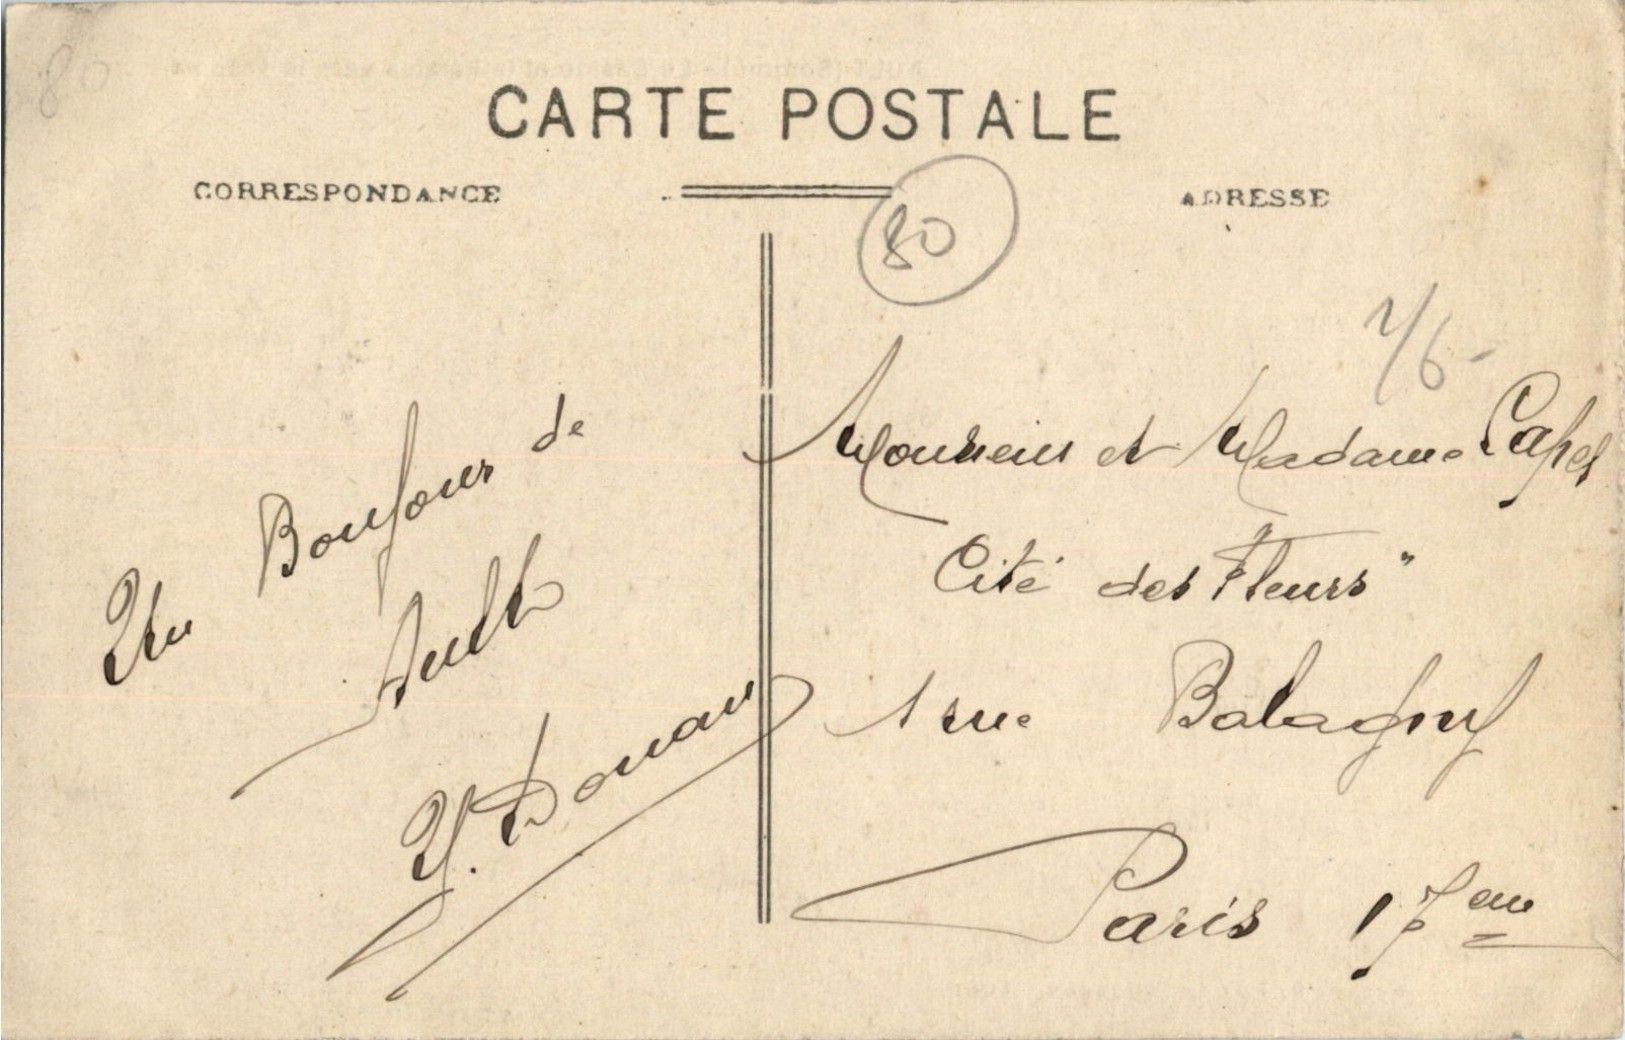 80
CARTE POSTALE
CORRESPONDANCE
ADRESSE
80
Un Bonjour de
Ault
Y. Donau
Monsieur et Madame Capel
Cité des Fleurs"
1 rue Balagny
Paris 17eme